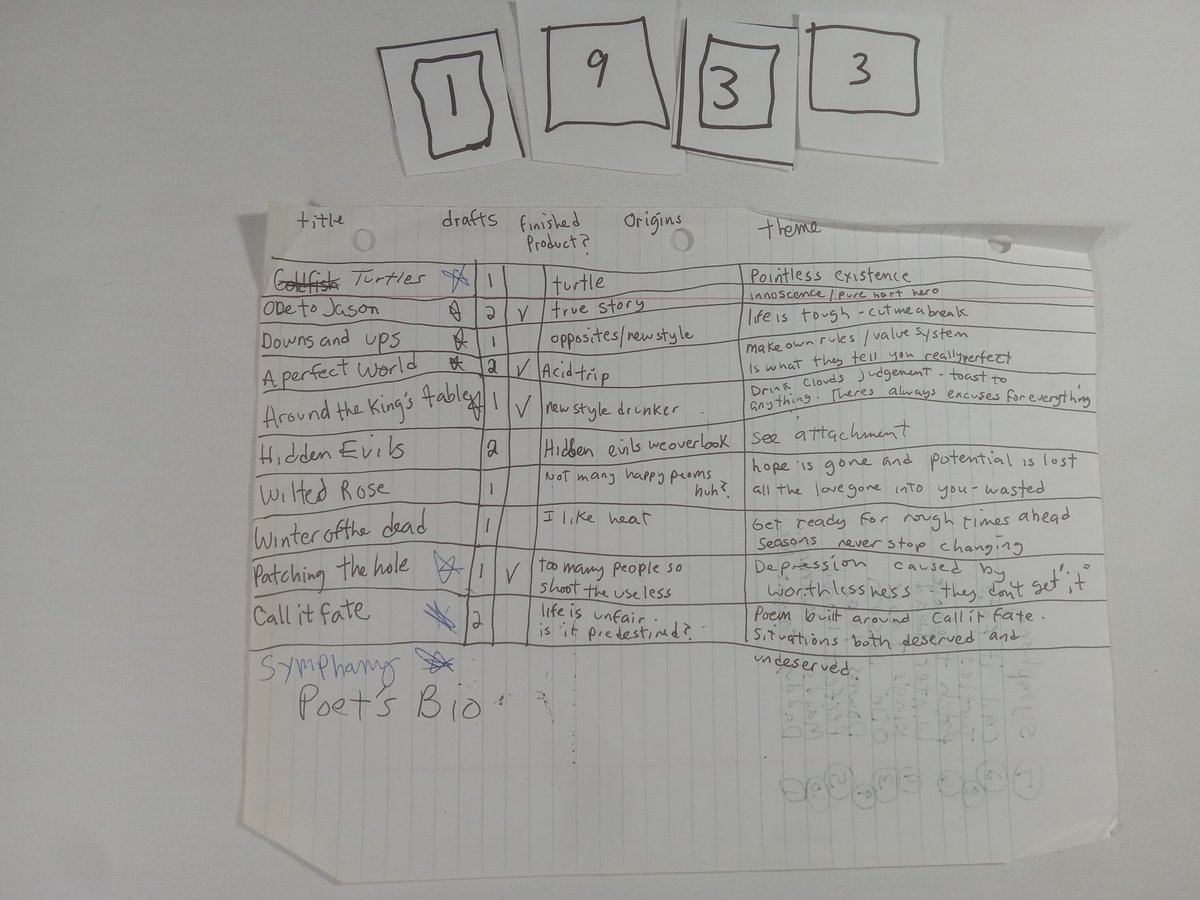 1 9 3 3
title drafts finished Product? Origins theme
Goldfish Turtles 1 turtle Pointless existence
Ode to Jason 2 ✓ true story innoscence/pure hart hero
life is tough - cut me a break
Downs and ups 1 opposites/new style make own rules / value system
A perfect World 2 ✓ Acid trip Is what they tell you really perfect
Around the King's table 1 ✓ new style drunker Drink clouds judgement - toast to
anything. Theres always excuses for everything
Hidden Evils 2 Hidden evils we overlook See attachment
Wilted Rose 1 Not many happy peoms huh? hope is gone and potential is lost
all the love gone into you - wasted
Winter of the dead 1 I like heat Get ready for rough times ahead
Seasons never stop changing
Patching the hole 1 ✓ too many people so Depression caused by
shoot the useless worthlessness - they don't get "it"
Call it fate 2 life is unfair. Poem built around Call it fate.
is it predestined? Situations both deserved and
undeserved.
Symphany
Poet's Bio